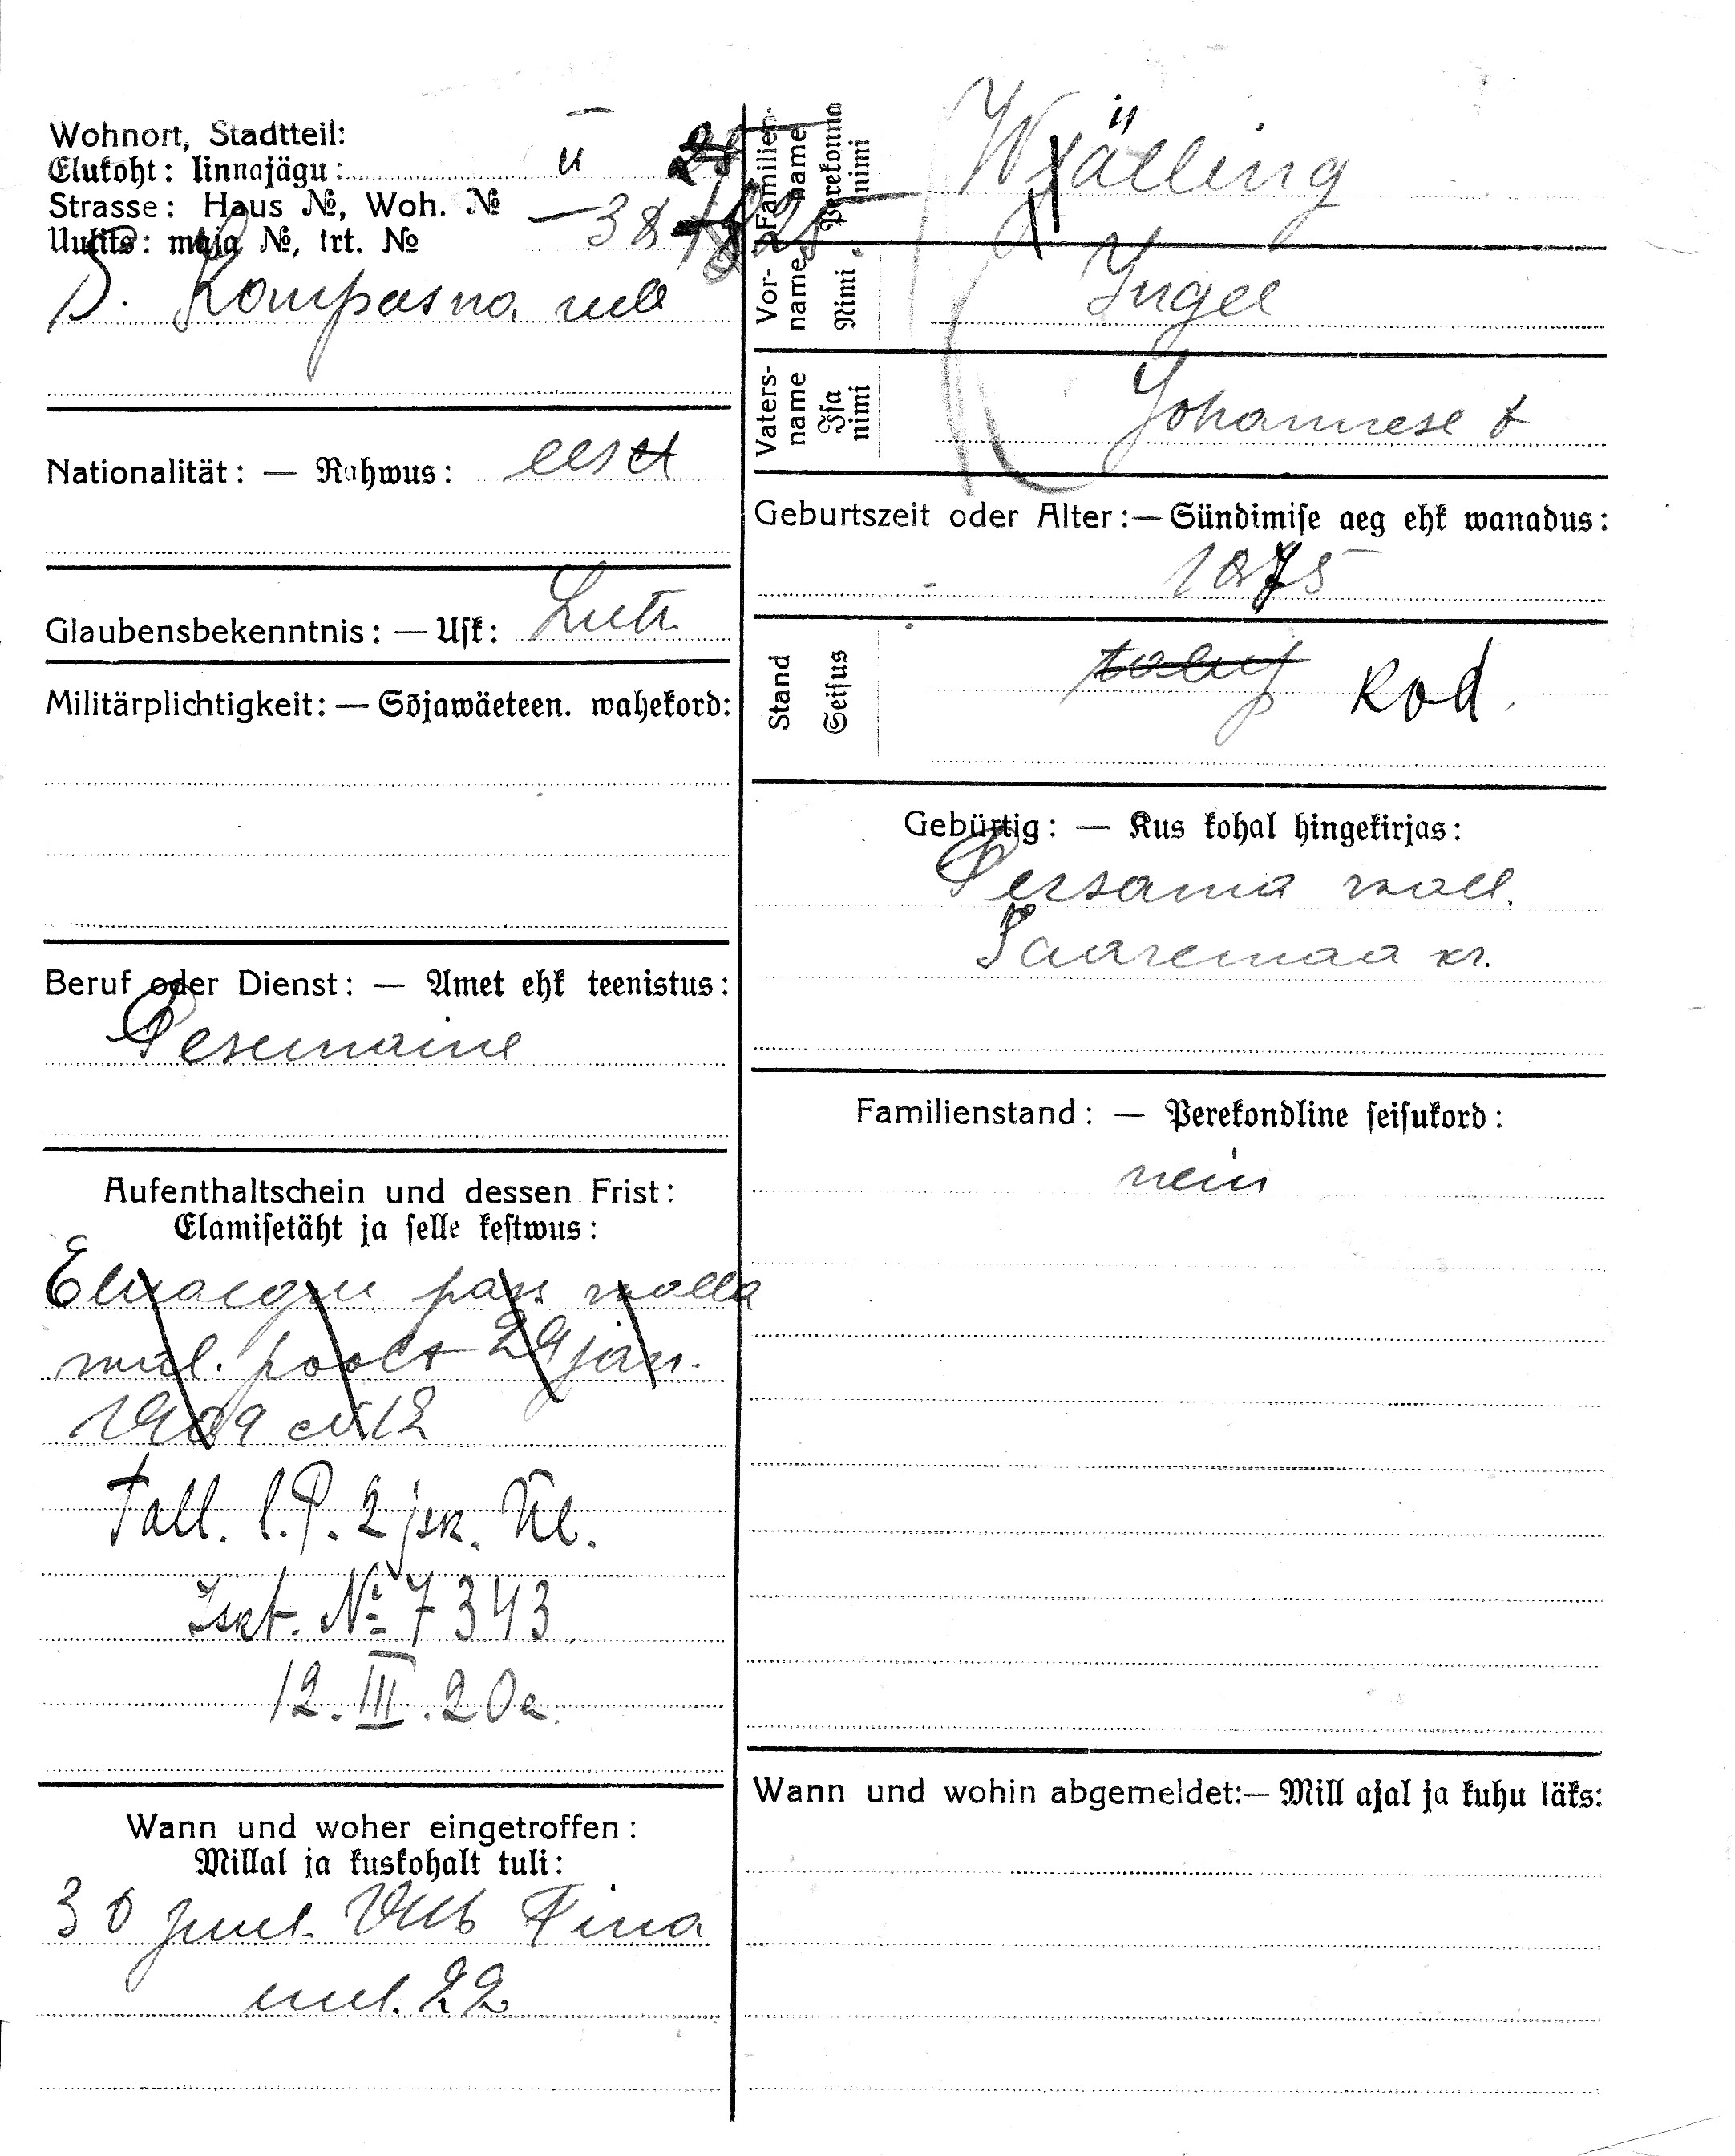 Wohnort, Stadtteil:
Elukoht: linnajägu: II
Strasse: Haus №, Woh. №
Uulits: maja №, krt. № 38
S. Kompasna uul
Nationalität: — Rahwus: eest
Glaubensbekenntnis: — Usk: Luth.
Militärplichtigkeit: — Sõjawäeteen. wahekord:
Beruf oder Dienst: — Amet ehk teenistus:
Pesemaine
Aufenthaltschein und dessen Frist:
Elamisetäht ja selle kestwus:
Eluaegne pass walla
wal. poolt 29 jan.
1909 № 12
Tall. l. P. 2 jsk. Ül.
Iskt. № 7343
12. III. 20 a.
Wann und woher eingetroffen:
Millal ja kuskohalt tuli:
30 juul. Tina
uul. 22
Familienname
Perekonna nimi
Wälling
Vorname
Nimi
Ingel
Vatersname
Isa nimi
Johannese t
Geburtszeit oder Alter: — Sündimise aeg ehk wanadus:
1875
Stand
Seisus
talup Kod.
Gebürtig: — Kus kohal hingekirjas:
Persama wall.
Saaremaa kr.
Familienstand: — Perekondline seisukord:
nein
Wann und wohin abgemeldet: — Mill ajal ja kuhu läks: